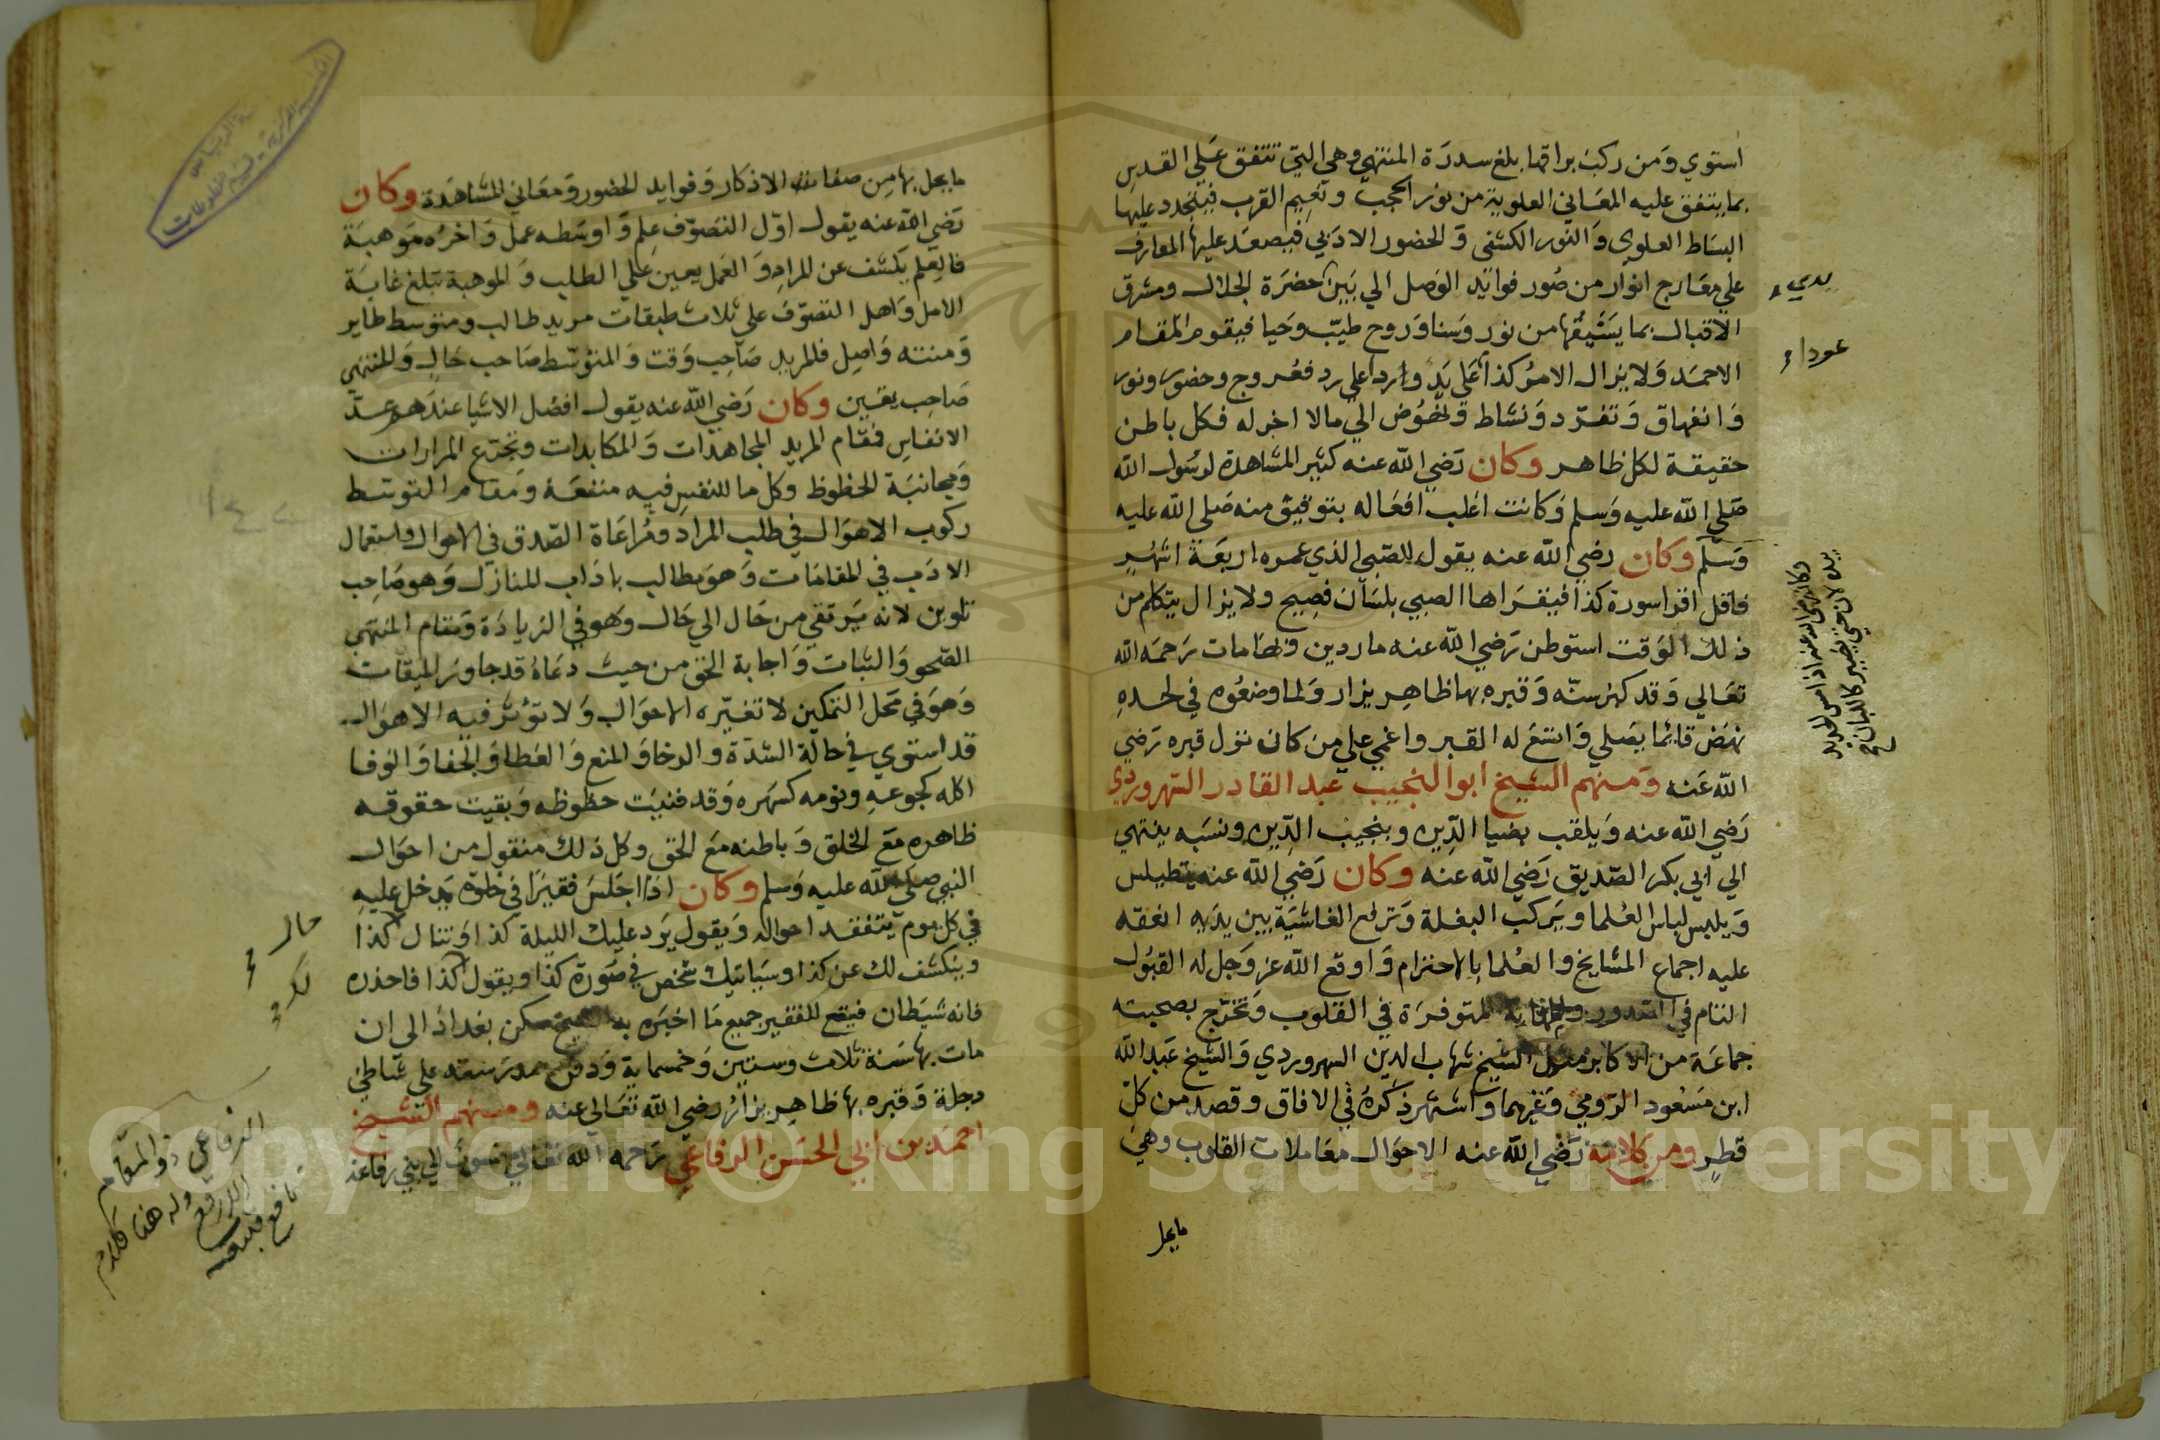 استوي وَمن ركبَ براقها بلغ سدرَة المنتهي وهي التي تتفق عَلي القدسِ
بما يتفق عليه المعَاني العلوية من نور الحجب وَنَعيم القرب فيتجدد عليهَا
البسَاط العلوي وَالنور الكشفى وَالحضور الادَبي فيصعَد عليهَا المعارف
علي معَارج انوار من صُور فوائد الوَصل الي بَين حضرَة الجلال ومشرق
الاقبال بما يسَتيقُها من نور وَسنا وَروح طيبّ وَحيا فيقوم المقام
الاحمَد وَلا يزال الامرُ كذا عَلي يَدٍ وارداعلي رد فعُروج وحضور ونور
وَانفهاق وَتفرّد وَنشاط وَنهوُض الي مالا اخر له فكل باطن
حقيقة لكل ظاهر وكان رَضي الله عنه كثير المشاهدة لرسُول الله
صَلي الله عليه وَسلم وَكانت اغلب افعَاله بتوقيق منه صَلي الله عليه
وَسَلم وكان رضي الله عنه يقول للصَبي الذي عمره اربعَة اشهُر
فاقل اقرا سورة كذا فيَقرَاها الصبي بلسَان فصِيح ولا يزال يتكلم من
ذلك الوَقت استوطن رَضي الله عنه ماردين وبهَا مات رَحمَه الله
تعَالي وَقد كبرَ سنّه وَقبره بها ظاهِر يزار وَلما وضعُوه في لحدهِ
نهَض قائما يصَلي وَاتسَع له القبر واغمي علي من كان نزل قبره رَضي
الله عَنه وَمنهم الشيخ ابو النجيب عبد القادر السهروردي
رَضي الله عنه وَيلقب بضيا الدّين وبنجيب الدّين ونسَبه ينتهي
الي ابي بكر الصّديق رَضي الله عنه وكان رَضي الله عنه يتطيلس
وَيلبس لباس العُلما ويَركب البغلة وَترفع الغاشيَة بين يدَيه انعقد
عليه اجماع المشايخ والعُلما بالاحترام وَاوقع الله عز وَجل له القبُول
التام في الصدور والمهابة المتوفرَة في القلوب وَتخرّج بصحبته
جماعَة من الاكابر مثل الشيخ شهاب الدين السهروردي وَالشيخ عَبد الله
ابن مَسعُود الرّومي وَغيرهما واشتهر ذكرهُ في الافاق وقصد من كلّ
قطرٍ ومن كلامه رَضي الله عنه الاحوَال معَاملات القلوب وهي
ما يحل
يدي
عوداء
وكان رضي الله عنه اذا مس الحديد
بيده لان حتي يصير كاللبان
ما يحل بها من صفات الاذكار وَفوايد الحضور وَمعَاني المشاهَدة وكان
رَضي الله عنه يقول اوّل التصَوّف عِلم وَاوسَطه عمل وَاخرُه مَوهبَة
فالعِلم يكشف عن المرادِ وَالعَمل يعين عَلي الطلب وَالموهبة تبلغ غايَة
الامل وَاهل التصَوّف علي ثلاث طبقات مريد طالب ومتوسط طاير
وَمنته وَاصِل فالمريد صَاحِب وَقت وَالمتوسّط صَاحب حَال وَالمنتهى
صَاحِب يقين وكان رَضي الله عنه يقول افضل الاشيا عندَهم عدّ
الانفاسِ فمقام المريد المجاهدات وَالمكابدات وتجتع المرارات
وَمجانبَة الحظوظ وكل ما للنفس فيه منفعَة وَمقام المتوسّط
ركوب الاهوَال في طلب المراد ومُراعَاة الصّدق في الاحوال واستعمال
الادَب في المقامَات وَهوَ مطالب باذاب المنازل وَهو صَاحِب
تلوين لانه يَرتقي من حَال الي حَال وَهو في الزيادَة وَمقام المنتهَى
الصّحو وَالثبات وَاجابة الحق من حيث دعَاهُ قد جاوزَ الميقات
وَهوَ في مَحل التمكين لا تغيّره الاحوَال وَلا تؤثر فيه الاهوَال
قد استوي في حالَة الشدّة والرخا وَالمنع وَالعَطا وَالجفا وَالوَفا
اكله كجوعهِ ونومه كسهَره وَقد فنيَت حظوظه وَبقيت حقوقه
ظاهره مَع الخلق وَباطنه مَع الحق وكل ذلك منقول من احوَال
النبي صَلي الله عليه وَسلم وكان اذا اجَلسَ فقيرًا في خلوة يَدخل عليهِ
في كل يوم يتفقد احواله وَيقول يَرد عليك الليلة كذا وَتنال كذا
وينكشف لك عن كذا وسَياتيك شخص في صُورة كذا ويقول كذا فاحذره
فانه شيَطان فيقع للفقير جميع مَا اخبَره به الشيخ سكن بغداذ الى ان
مات بها سَنة ثلاث وستين وَخمسماية وَدفن بمدرَسته علي شاطئ
دجلة وَقبره بها ظاهِر يزارُ رضي الله تعَالي عنه ومنهم الشيخ
احمَد بن ابي الحسَن الرفاعي رَحمه الله تعَالي منسوب الي بني رفاعة
حال
لك
الرفاعي ذو المقام
الارفع
وله هنا كلام
نافع